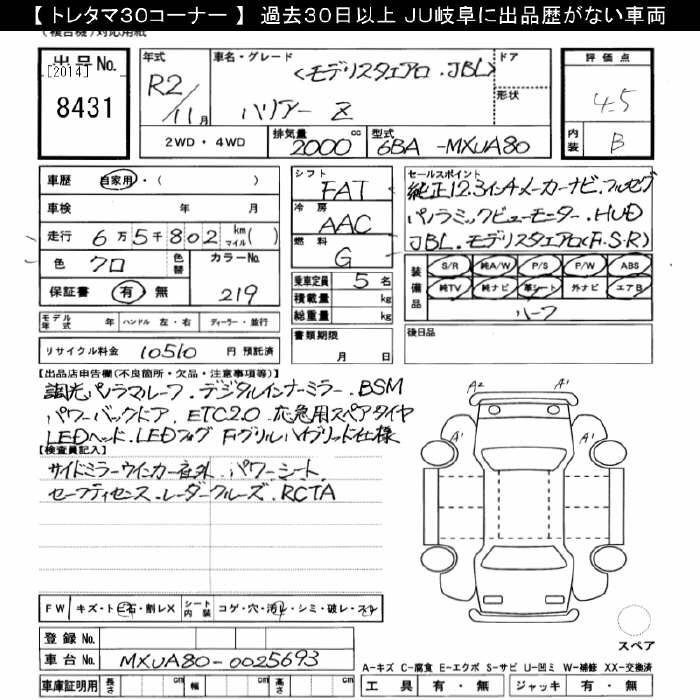 【 トレタマ30コーナー 】 過去30日以上 JU岐阜に出品歴がない車両
(複合機)対応用紙
出品No.
[2014]
8431
年式
R2/11月
車名・グレード
<モデリスタエアロ・JBL>
ハリアー Z
ドア
形状
評価点
4.5
内装 B
2WD・4WD
排気量 2000 cc
型式 6BA -MXUA80
車歴 自家用・( )
車検 年 月
走行 6万5千802 km マイル( )
色 クロ 色替 カラーNo. 219
保証書 有・無
モデル年式 年 ハンドル 左・右 ディーラー・並行
リサイクル料金 10510 円 預託済
シフト FAT
冷房 AAC
燃料 G
乗車定員 5 名
積載量 kg
総重量 kg
書類期限
月 日
セールスポイント
純正12.3インチメーカーナビ・フルセグ
パノラミックビューモニター・HUD
JBL・モデリスタエアロ(F・S・R)
装備品
S/R 純A/W P/S P/W ABS
純TV 純ナビ 革シート 外ナビ エアB
ハーフ
後日品
【出品店申告欄(不良箇所・欠品・注意事項等)】
調光パノラマルーフ・デジタルインナーミラー・BSM
パワーバックドア・ETC2.0 応急用スペアタイヤ
LEDヘッド・LEDフォグ Fグリルハイブリッド仕様
【検査員記入】
サイドミラーウインカー社外・パワーシート
セーフティセンス・レーダークルーズ・RCTA
A2 A1
A1 A1
FW キズ・トビ石・割レX シート内装 コゲ・穴・汚レ・シミ・破レ・スレ
登録No.
車台No. MXUA80-0025693
車庫証明用 長さ cm 幅 cm 高さ cm
スペア
A-キズ C-腐食 E-エクボ S-サビ U-凹ミ W-補修 XX-交換済
工具 有・無 ジャッキ 有・無